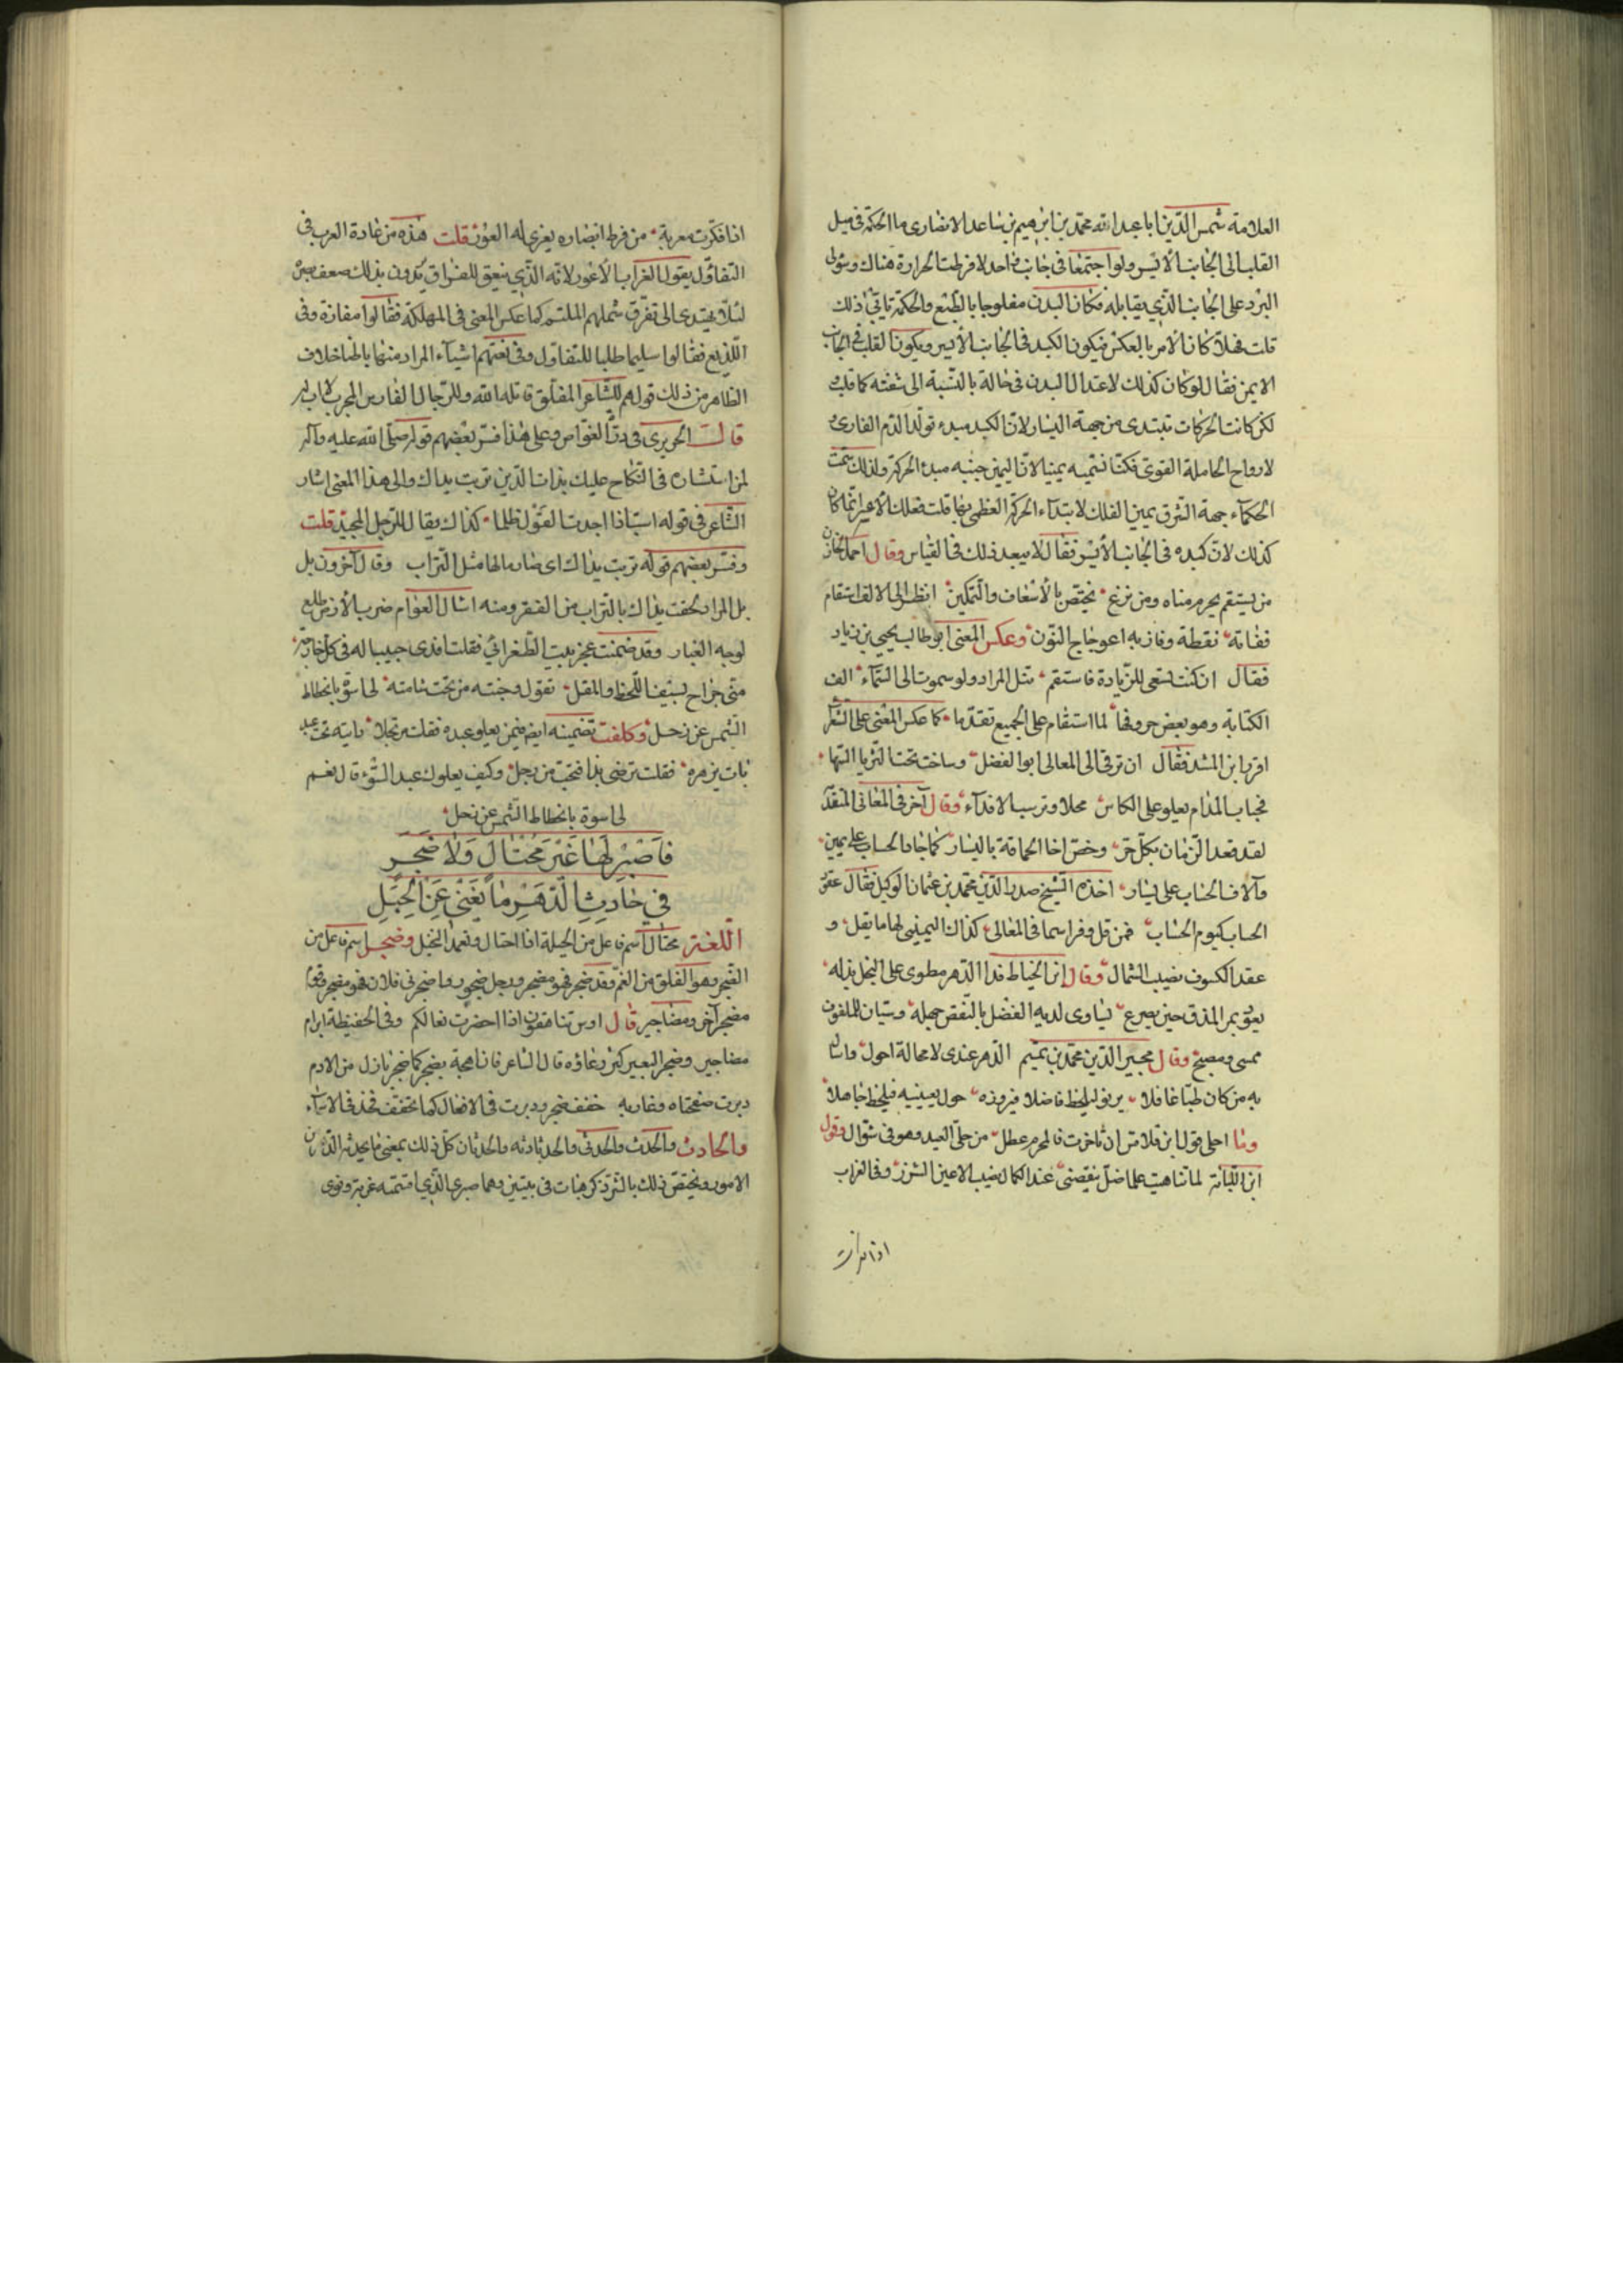 العلامة شمس الدين ابا عبد الله محمد بن ابرهيم بن ساعد الانصارى ما الحكمة فى ميل
القلب الى الجانب الأيسر ولو اجتمعا فى جانب واحد لافرطت الحرارة هناك وستولى
البرد على الجانب الذى يقابله فكان البدن مفلوجا بالطبع والحكمة تابى ذلك
قلت فهلا كان الأمر بالعكس فيكون الكبد فى الجانب الأيسر ويكون القلب فى الجانب
الايمن فقال لو كان كذلك لاعتدال البدن فى حالة بالنسبة الى شقته كما قلت
لكن كانت الحركات تبتدى من جهة اليسار لان الكبد مبدء تولد الدم الغاذى و
لارواح الحاملة القوى فكنا نسميه يمينا لان اليمين جنبه مبدء الحركة ولذلك سمت
الحكمآء جهة الشرق يمين الفلك لابتدآء الحركة العظمى بها قلت فعلك الأعسر انما كان
كذلك لان كبده فى الجانب الأيسر فقال لا يبعد ذلك فى القياس وقال احمد الخازن
من يستقم يحرم مناه ومن يزغ يختص بالأسعاف والتمكين انظر الى الالف استقام
ففاته نقطة وفاز به اعوجاج النون وعكس المعنى ابو طالب يحيى بن زياد
فقال ان كنت تسعى للزيادة فاستقم تنل المراد ولو سموت الى السمآء الف
الكتابة وهو بعض حروفها لما استقام على الجميع تقدما كما عكس المعنى على الشعر
افزيا بن المشد فقال ان ترقى الى المعالى ابو الفضل وساخت تحت الثريا السها
فحباب المدام يعلو على الكاس محلا وترسب الاقدآء وقال آخر فى المعانى المتقدم
لقد قعد الزمان بكل حر وخص اخا الحماقة باليسار كما جاد الحساب على يمين
وآلاف الحساب على يسار اخذه الشيخ صدر الدين محمد بن عثمان الوكيل فقال عقود
الحساب كيوم الحساب فمن قل وفر اسما فى المعالى كذاك اليمين لها ما يقل و
عقد الكسوف نصيب الشمال وقال ابن الخياط فدا الدهر مطوى على البخل بذله
يعود بمر المذق حين يصرع يساوى لديه الفضل بالنقص جهله وسيان للملفوف
ممسى ومصبح وقال مجير الدين محمد بن تميم الدهر عندى لا محالة احول وانا
به من كان طبا غافلا يرنو ليلحظ فاضلا فيرده حول بعينيه فيلحظ جاهلا
وما احلى قول ابن قلاقس ان تاخرت فالمحرم عطل من حلى العيد وهو فى شوال وقول
ابن اللبانة لما تناهيت علما ضل ينقيصنى عند الكمال نصيب الاعين الشزر وفى الغراب
اذا فكرت
اذا فكرت معربة من فرط ابصاره يعزى له العور قلت هذه من عادة العرب فى
التفاؤل يقول الغراب الأعور لانه الذى ينعق للفراق يريدون بذلك ضعف بصره
لئلا يهتدى الى تفرق شملهم الملتئم كما عكس المعنى فى المهلكة فقالوا مفازة وفى
اللذيع فقالوا سليما طلبا للتفاؤل وفى لغتهم اشيآء المراد منها باطنا خلاف
الظاهر من ذلك قولهم للشاعر المفلق قاتله الله وللرجال الفارس المجرب لا اب لك
قال الحريرى فى درة الغواص وعلى هذا فسر بعضهم قوله صلى الله عليه وآله
لمن استشاره فى النكاح عليك بذات الدين تربت يداك والى هذا المعنى اشار
الشاعر فى قوله اسب اذا اجدت القول ظلما كذاك يقال للرجل المجيد قلت
وفسر بعضهم قوله تربت يداك اى صار مالها مثل التراب وقال آخرون بل
بل المراد لحقت يداك بالتراب من الفقر ومنه امثال العوام ضرب الأرض طلع
لوجه الغبار وقد ضمنت عجز بيت الطغرائى فقلت افدى حبيبا له فى كل جارحة
منى جراح بسيف اللحظ والمقل تقول وجنته من تحت شامته لى اسوة بانحطاط
الشمس عن زحل وكلفت تضمينه ايضا فيمن يعلو عبده فقلت رجلا رايته تحت عبد
بات يزمره فقلت ترضى بذا فتحت من رجل وكيف يعلوك عبد السوء قال نعم
لى اسوة بانحطاط الشمس عن زحل
فَاصْبِرْ لَهَا غَيْرَ مُحْتَالٍ وَلَا ضَجِرٍ
فى حَادِثِ الدَّهْرِ مَا يُغْنِى عَنِ الْحِيَلِ
اللغة محتال اسم فاعل من الحيلة اذا احتال وتعمد الخيل وضجر اسم فاعل من
الضجر وهو القلق من الغم وقد ضجر فهو مضجر ورجل ضجور واضجرنى فلان فهو مضجر وقوم
مضجر آخر ومضاجير قال اوس تناهقون اذا اخضرت نعالكم وفى الحفيظة ابرام
مضاجير وضجر البعير كثر رغاؤه قال الشاعر فان اهجه يضجر كما ضجر بازل من الادم
دبرت صفحتاه وغاربه خفف ضجر ودبرت فى الافعال كما يخفف فخذ فى الاسماء
والحادث والحدث والحدثى والحادثة والحدثان كل ذلك بمعنى ما يحدثه الدهر من
الامور ويختص ذلك بالشر ذكر هنات فى بيتين وهما صبرى الذى اقتسمته غربة ونوى